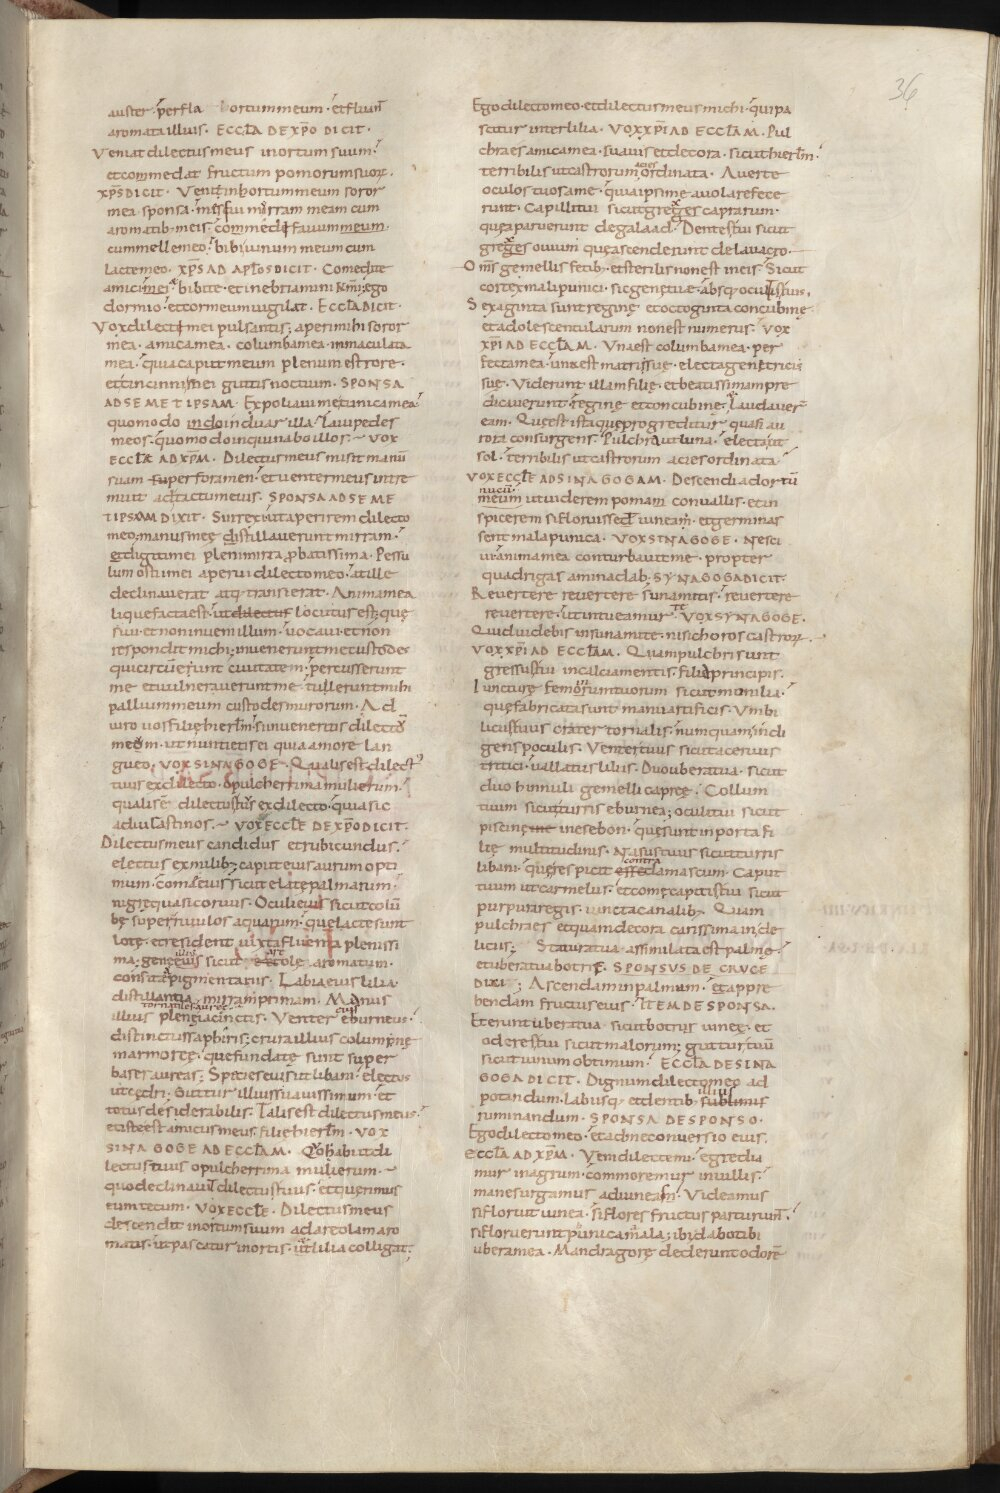 36
auster · perfla hortum meum · et fluant̄
aromata illius · ECCLA DE XP̄O DICIT ·
Veniat dilectus meus in ortum suum ·
et commedat fructum pomorum suorꝝ ·
XP̄S DICIT · Veni in hortum meum soror
mea sponsa · messui mirram meam cum
aromatib· meis · commedi favum meum ·
cum melle meo · bibi vinum meum cum
lacte meo · XP̄S AD APL̄OS DICIT · Comedite
amici mei · bibite · et inebriamini k̄mi · ego
dormio · et cor meum vigilat · ECCLA DICIT ·
Vox dilecti mei pulsantis ; aperi mihi soror
mea · amica mea · columba mea · inmaculata
mea · quia caput meum plenum est rore ·
et cincinni mei guttis noctium · SPONSA
AD SEMET IPSAM · Expoliavi me tunica mea ·
quomodo induar illa · Lavi pedes
meos · quomodo inquinabo illos · VOX
ECCLĘ AD XP̄M · Dilectus meus misit manū
suam per foramen · et venter meus intre
muit ad tactum eius · SPONSA AD SEME
TIPSAM DIXIT · Surrexi ut aperirem dilecto
meo · manus meę distillaverunt mirram ·
et digiti mei pleni mirra probatissima · Pessu
lum ostii mei aperui dilecto meo · at ille
declinaverat atq; transierat · Anima mea
liquefacta est · ut dilectus locutus est ; quę
sivi · et non inveni illum · vocavi · et non
respondit michi ; invenerunt me custodes
qui circūerunt civitatem · percusserunt
me et vulneraverunt me · tullerunt mihi
pallium meum custodes murorum · Ad
iuro vos filię hierl̄m · si inveneritis dilectō
meum · ut nuntietis ei quia amore lan
gueo ; VOX SINAGOGE · Qualis est dilect᾽
tuus ex dilecto · o pulcherrima mulierum ·
qualis ē dilectus tuus ex dilecto · quia sic
adiurasti nos · VOX ECCLĘ DE XP̄O DICIT ·
Dilectus meus candidus et rubicundus ·
electus ex milib; caput eius aurum opti
mum · comę eius sicut elatę palmarum ·
nigrę quasi corvus · Oculi eius sicut colū
bę super rivulos aquarum · quę lacte sunt
lotę · et resident iuxta fluenta plenissi
ma ; genę eius sicut areolę aromatum ·
consitę a pigmentariis · Labia eius lilia ·
distillantia mirram primam · Manus
tornatiles aureę
illius plenę iacinctis · Venter eius eburneus ·
distinctus saphiris ; crura illius columpnę
marmoreę · que fundatę sunt super
bases aureas ; Species eius ut libani · electus
ut cedri · Guttur illius suavissimum · et
totus desiderabilis · Talis est dilectus meus ·
et iste est amicus meus · filię hierl̄m · VOX
SINAGOGE AD ECCLAM · Quo habiit di
lectus tuus o pulcherrima mulierum ·
quo declinavit dilectus tuus · et querimus
eum tecum · VOX ECCLĘ · Dilectus meus
descendit in ortum suum ad areolam aro
matis · ut pascatur in ortis · ut lilia colligat ·
Ego dilecto meo · et dilectus meus michi · qui pa
scitur inter lilia · VOX XP̄I AD ECCLĀM · Pul
chra es amica mea · suavis et decora · sicut hierl̄m ·
terribilis ut castrorum acies ordinata · Averte
oculos tuos a me · quia ipsi me avolare fece
runt · Capilli tui sicut greges caprarum ·
quę aparuerunt de galaad · Dentes tui sicut
greges ovium quę ascenderunt de lavacro ·
Om̄s gemellis fetib; et sterilis non est in eis · Sicut
cortex mali punici · sic genę tuę · absq; ocultis tuis ·
Sexaginta sunt reginę · et octoginta concubinę ·
et adolescentularum non est numerus · VOX
XP̄I AD ECCLĀM · Una est columba mea · per
fecta mea · una est matris suę · electa genetricis
suę · Viderunt illam filię · et beatissimam pre
dicaverunt · reginę et concubinę · Laudaver̄
eam · Quę est ista quę progreditur quasi au
rora consurgens · Pulchra ut luna · electa ut
sol · terribilis ut castrorum acies ordinata ·
VOX ECCLĘ AD SINAGOGAM · Descendi ad ortū
nucū
meum ut viderem poma in convallis · et in
spicerem si floruissed vineam · et germinas
sent mala punica · VOX SINAGOGE · Nesci
vi · anima mea conturbavit me · propter
quadrigas aminadab · SYNAGOGA DICIT ·
Revertere revertere sunamitis · revertere
revertere · ut intueamur te · VOX SYNAGOGE ·
Quid videbis in sunamite · nisi choros castrorꝝ ·
VOX XP̄I AD ECCLĀM · Quam pulchri sunt
gressus tui in calciamentis · filia principis ·
Iuncturę femorum tuorum sicut monilia ·
quę fabricata sunt manu artificis · Umbi
licus tuus crater tornalis · numquam indi
gens poculis · Venter tuus sicut acervus
tritici · vallatus liliis · Duo ubera tua · sicut
duo hinnuli gemelli capreę · Collum
tuum sicut turris eburnea ; oculi tui sicut
piscinę in esebon · quę sunt in porta fi
lię multitudinis · Nasus tuus sicut turris
libani · quę respicit contra damascum · Caput
tuum ut carmelus · et comę capitis tui sicut
purpura regis · iuncta canalib; Quam
pulchra es et quam decora carissima in de
liciis ; Statura tua assimilata est palmę ·
et ubera tua botris · SPONSUS DE CRUCE
DIXI ; Ascendam in palmam · et appre
hendam fructus eius · ITEM DE SPONSA ·
Et erunt ubera tua · sicut botrus vineę · et
odor est tui sicut malorum ; guttur tuū
sicut vinum obtimum · ECCLA DE SINA
GOGA DICIT · Dignum dilecto meo ad
potandum · labiisq; et dentib; illius
ruminandum · SPONSA DE SPONSO ·
Ego dilecto meo · et ad me conversio eius ·
ECCLA AD XP̄M · Veni dilecte mi · egredia
mur in agrum · commoremur in villis ·
mane surgamus ad vineam · Videamus
si floruit vinea · si flores fructus parturiunt̄ ·
si floruerunt punica mala ; ibi dabo tibi
ubera mea · Mandragorę dederunt odorē